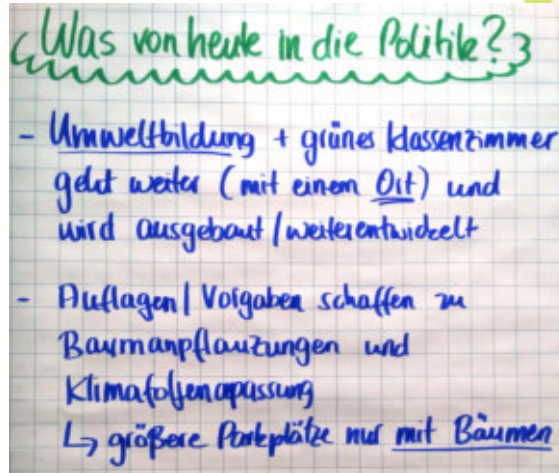 Was von heute in die Politik?
- Umweltbildung + grünes Klassenzimmer
geht weiter (mit einem Ort) und
wird ausgebaut / weiterentwickelt
- Auflagen / Vorgaben schaffen zu
Baumanpflanzungen und
Klimafolgenapassung
↳ größere Parkplätze nur mit Bäumen